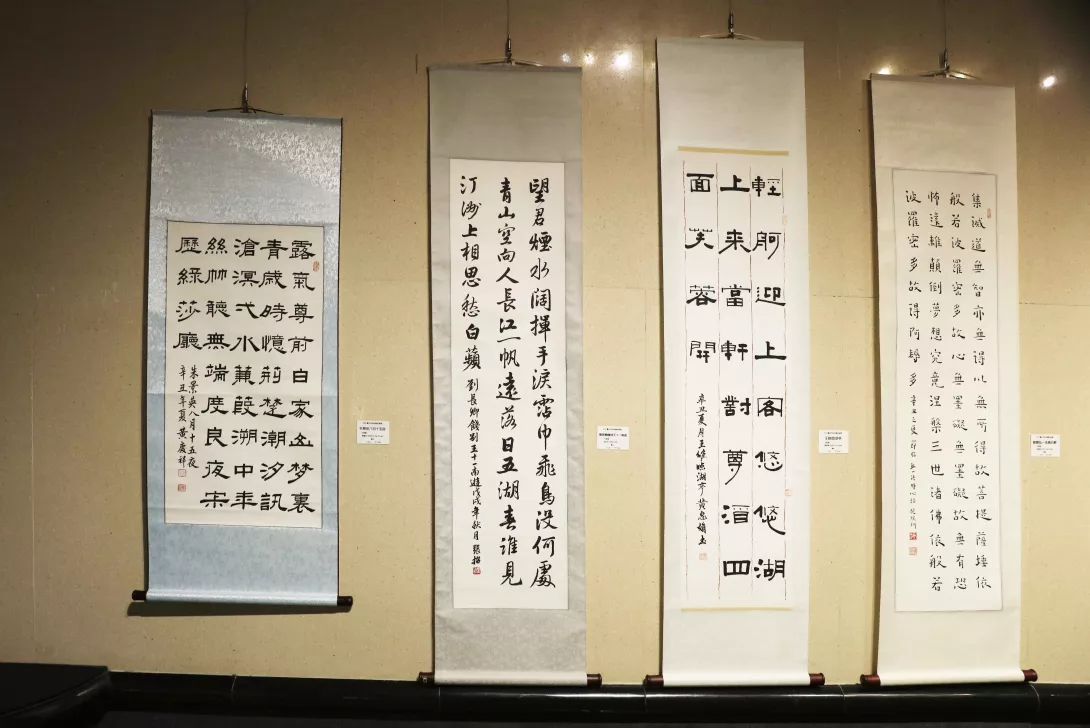 露氣尊前白家山夢裏
青歲時憶荊楚潮汐訊
滄溟弌水蒹葭溯中年
絲竹聽無端度良夜宋
歷綠莎廳
朱景英八月十五夜
辛丑年夏黃慶祥
望君煙水闊揮手淚霑巾飛鳥沒何處
青山空向人長江一帆遠落日五湖春誰見
汀洲上相思愁白蘋劉長卿餞別王十一南遊戊戌年秋月張招
輕舸迎上客悠悠湖
上來當軒對尊酒四
面芙蓉開
辛丑夏月王維臨湖亭黃
集滅道無智亦無得以無所得故菩提薩埵依
般若波羅密多故心無罣礙無罣礙故無有恐
怖遠離顛倒夢想究竟涅槃三世諸佛依般若
波羅密多故得阿耨多辛丑之夏